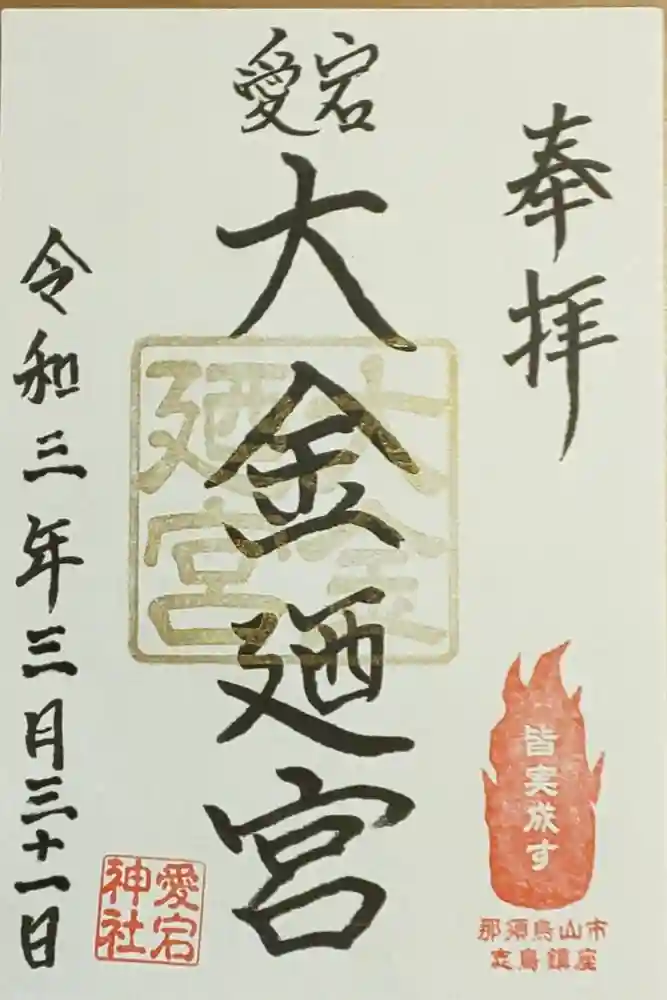 奉拝
愛宕
大金廼宮
大金
廼宮
令和三年三月三十一日
皆実成す
那須烏山市
志鳥鎮座
愛宕
神社